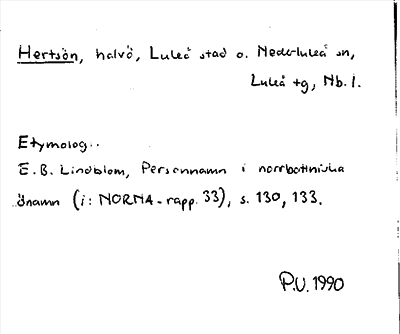 Hertsön, halvö, Luleå stad o. Nederluleå sn,
Luleå tg, Nb. l.
Etymolog..
E.B. Lindblom, Personnamn i norrbottniska
önamn (i: NORNA-rapp. 33), s. 130, 133.
P.U. 1990